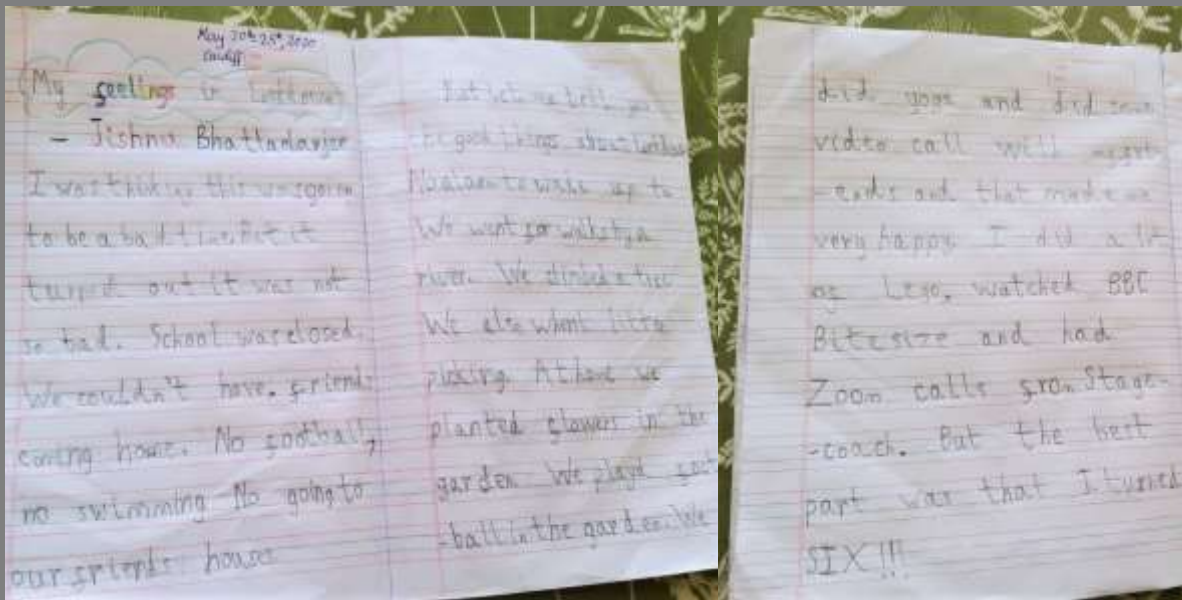 May 20th-25th, 2020
Cardiff
My feelings in lockdown
- Jishnu Bhattacharjee
I was thinking this was going
to be a bad time, but it
turned out it was not
so bad. School was closed.
We couldn't have friends
coming home. No football,
no swimming No going to
our friends houses
But let me tell you
the good things about lockdown
to wake up to
We went for walks by a
river. We climbed a tree
We also whent litte
picking. At home we
planted flowers in the
garden. We playd foot
-ball in the garden. We
did yoga and did some
video call with my fri
-ends and that made me
very happy. I did a lot
of Lego, watched BBC
Bitesize and had
Zoom calls from Stage-
-coach. But the best
part was that I turned
SIX!!!